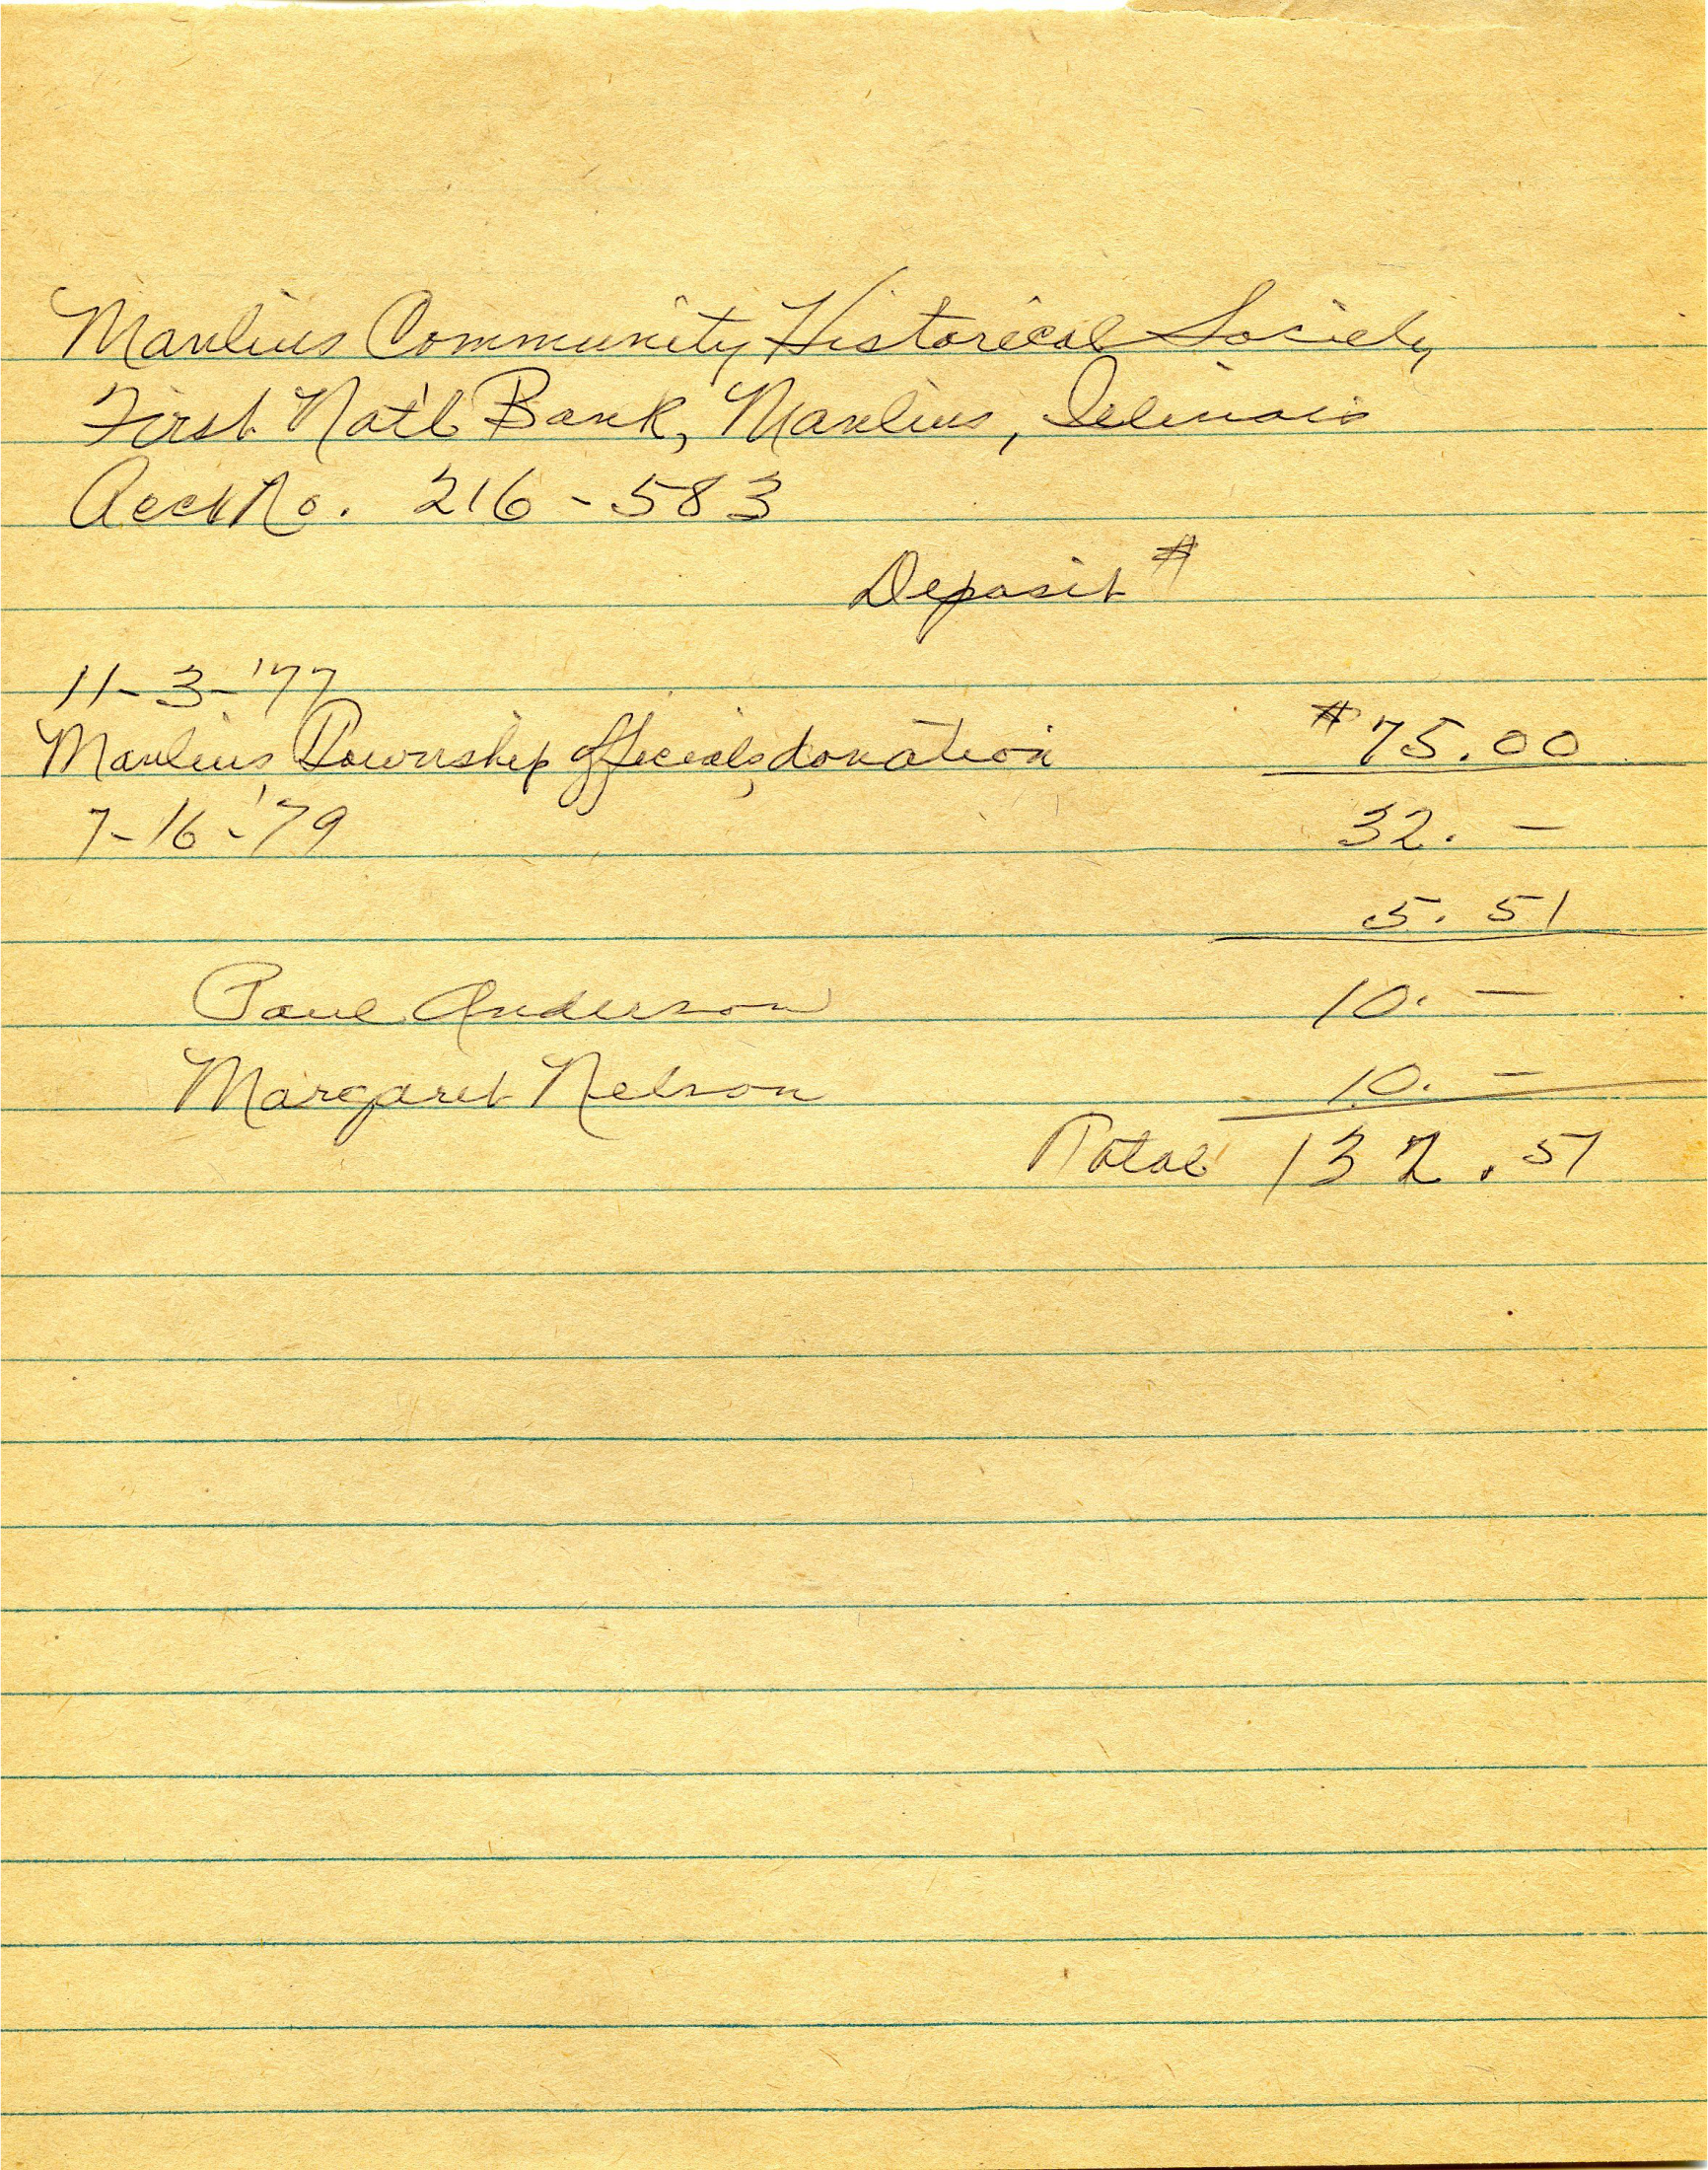 Manlius Community Historical Society
First Nat'l Bank, Manlius, Illinois
Acct No. 216-583
Deposit #
11-3-'77
Manlius Township officials, donation $75.00
7-16-'79 32. —
5. 51
Paul Anderson 10. —
Margaret Nelson 10. —
Total 132.51